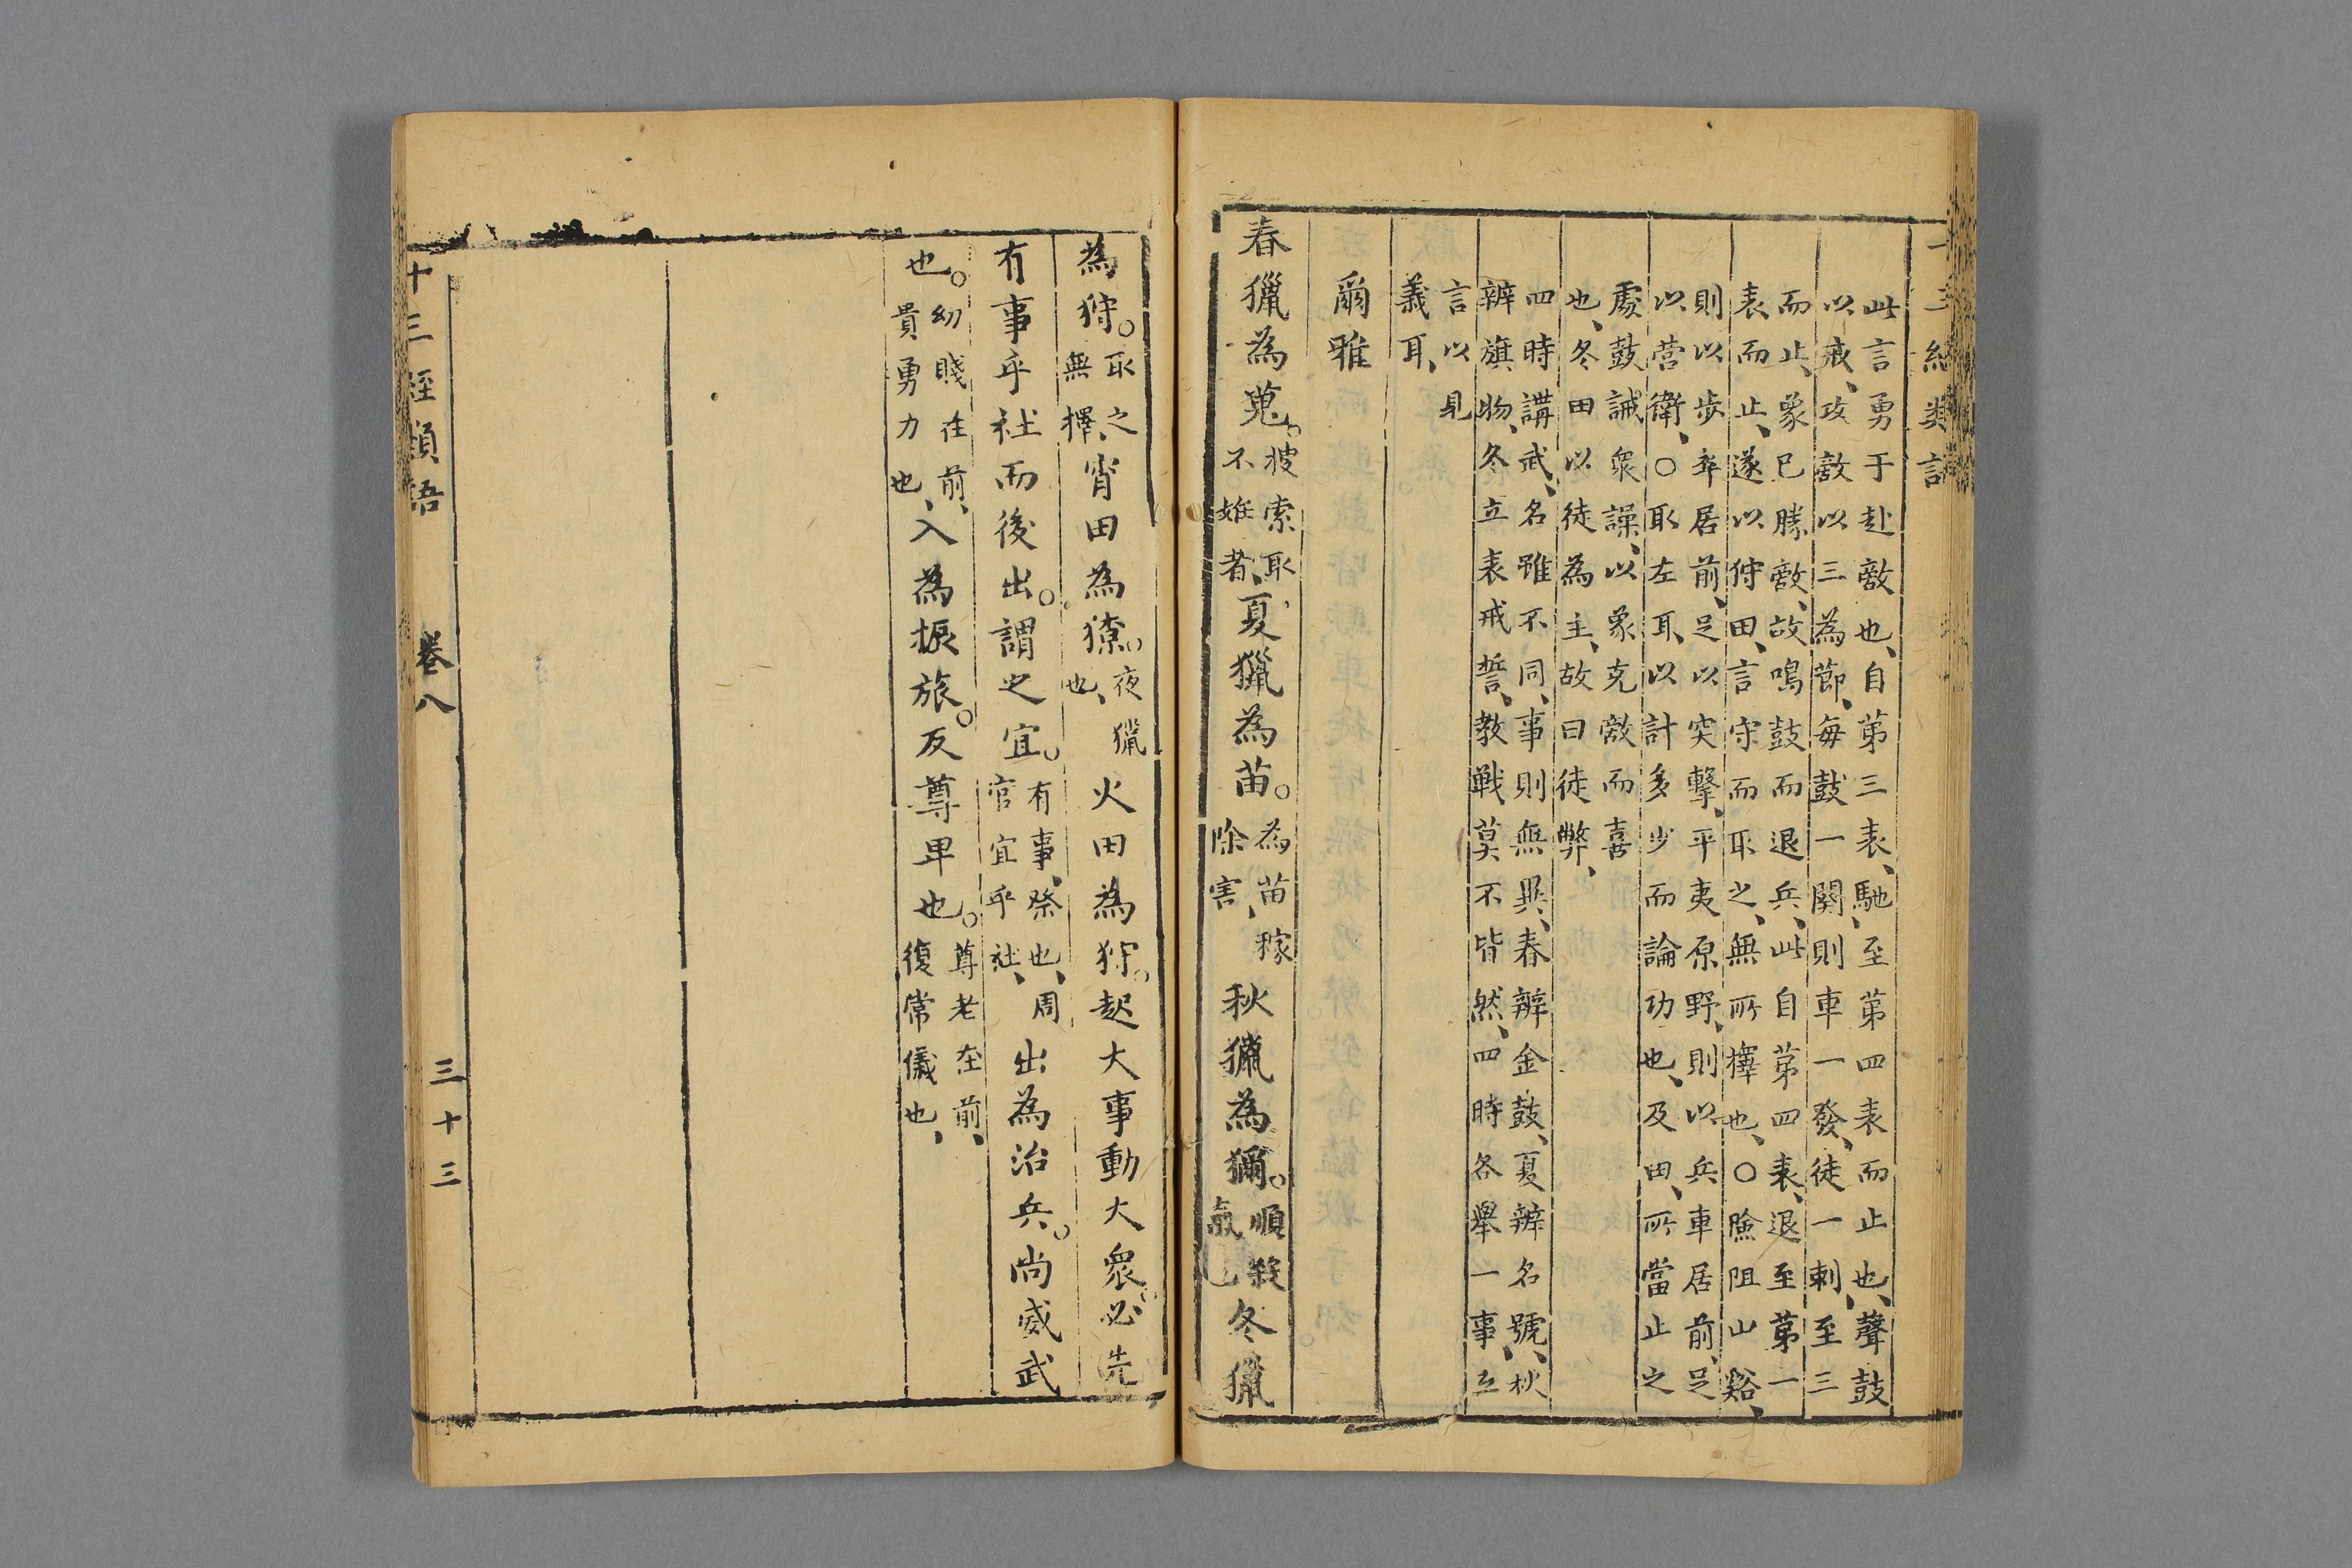 十三經類語
此言勇于赴敵也、自苐三表、馳、至苐四表而止也、聲鼓
以戒、攻敵以三為節、每鼓一闋則車一發、徒一刺至三
而止、象已勝敵、故鳴鼓而退兵、此自苐四表、退至苐一
表而止、遂以狩田、言守而取之、無所擇也、○險阻山谿、
則以步卒居前、足以突擊、平夷原野、則以兵車居前、足
以營衛、○取左耳、以計多少而論功也、及田、所當止之
處鼓諴衆譟、以象克敵而喜
也、冬田以徒為主、故曰徒弊、
四時講武、名雖不同、事則無異、春辨金鼓、夏辨名號、秋
辨旗物、冬立表戒誓、教戰莫不皆然、四時各舉一事立
言以見
義耳、
爾雅
春獵為蒐。搜索取
不姙者、夏獵為苗。為苗稼
除害、秋獵為獮。順殺
氣也冬獵
為狩。取之
無擇、宵田為獠。夜獵
也、火田為狩。起大事動大衆。必先
有事乎社而後出。謂之宜。有事、祭也、周
官宜乎社、出為治兵。尚威武
也。幼賤在前、
貴勇力也、入為振旅。反尊卑也。尊老在前、
復常儀也、
十三經類語
卷八
三十三